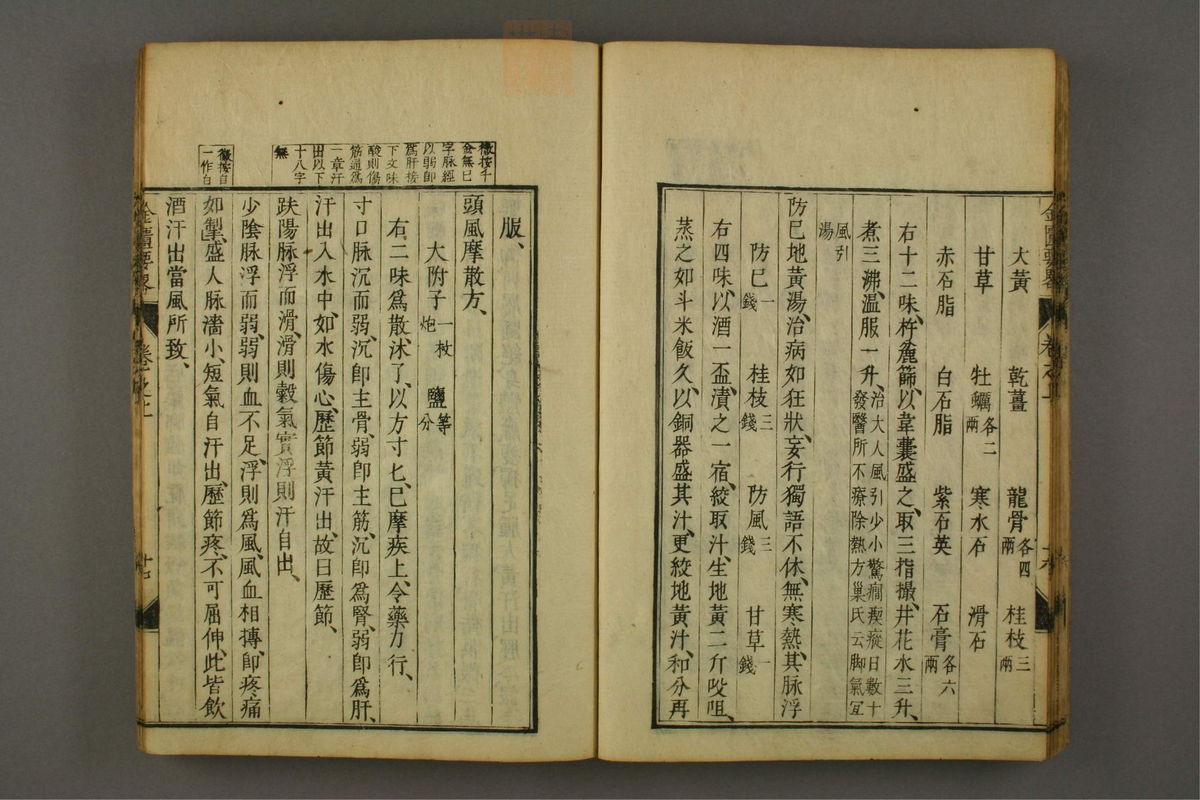 大黃 乾薑 龍骨各四兩 桂枝三兩
甘草 牡蠣各二兩 寒水石 滑石
赤石脂 白石脂 紫石英 石膏各六兩
右十二味、杵麄篩、以韋囊盛之、取三指撮、井花水三升、
煮三沸、溫服一升、治大人風引少小驚癇瘈瘲日數十
發醫所不療除熱方巢氏云脚氣宜
風引
湯
防巳地黃湯、治病如狂狀、妄行獨語不休、無寒熱、其脉浮
防巳一錢 桂枝三錢 防風三錢 甘草一錢
右四味、以酒一盃、漬之一宿、絞取汁、生地黃二斤㕮咀、
蒸之如斗米飯久、以銅器盛其汁、更絞地黃汁、和分再
金匱要畧
卷之上
服、
頭風摩散方、
大附子一枚炮 鹽等分
右二味爲散、沐了、以方寸匕、巳摩疾上、令藥力行、
寸口脉沉而弱、沉卽主骨、弱卽主筋、沉卽爲腎、弱卽爲肝、
汗出入水中、如水傷心、歷節黃汗出、故曰歷節、
趺陽脉浮而滑、滑則穀氣實、浮則汗自出、
少陰脉浮而弱、弱則血不足、浮則爲風、風血相搏、卽疼痛
如掣、盛人脉濇小、短氣自汗出、歷節疼、不可屈伸、此皆飲
酒汗出當風所致、
徵按千
金無巳
字脉經
以弱卽
爲肝接
下文味
酸則傷
筋過爲
一章汗
出以下
十八字
無
徵按自
一作白
金匱要畧
卷之上
十七